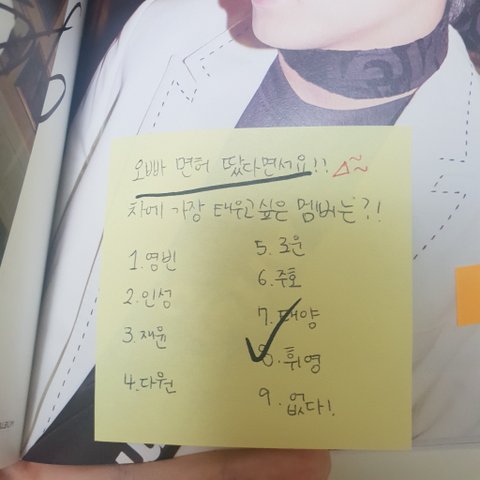 오빠 면허 땄다면서요!!
차에 가장 태우고싶은 멤버는?!
1. 영빈
2. 인성
3. 재윤
4. 다원
5. 로운
6. 주호
7. 태양
8. 휘영
9. 없다!